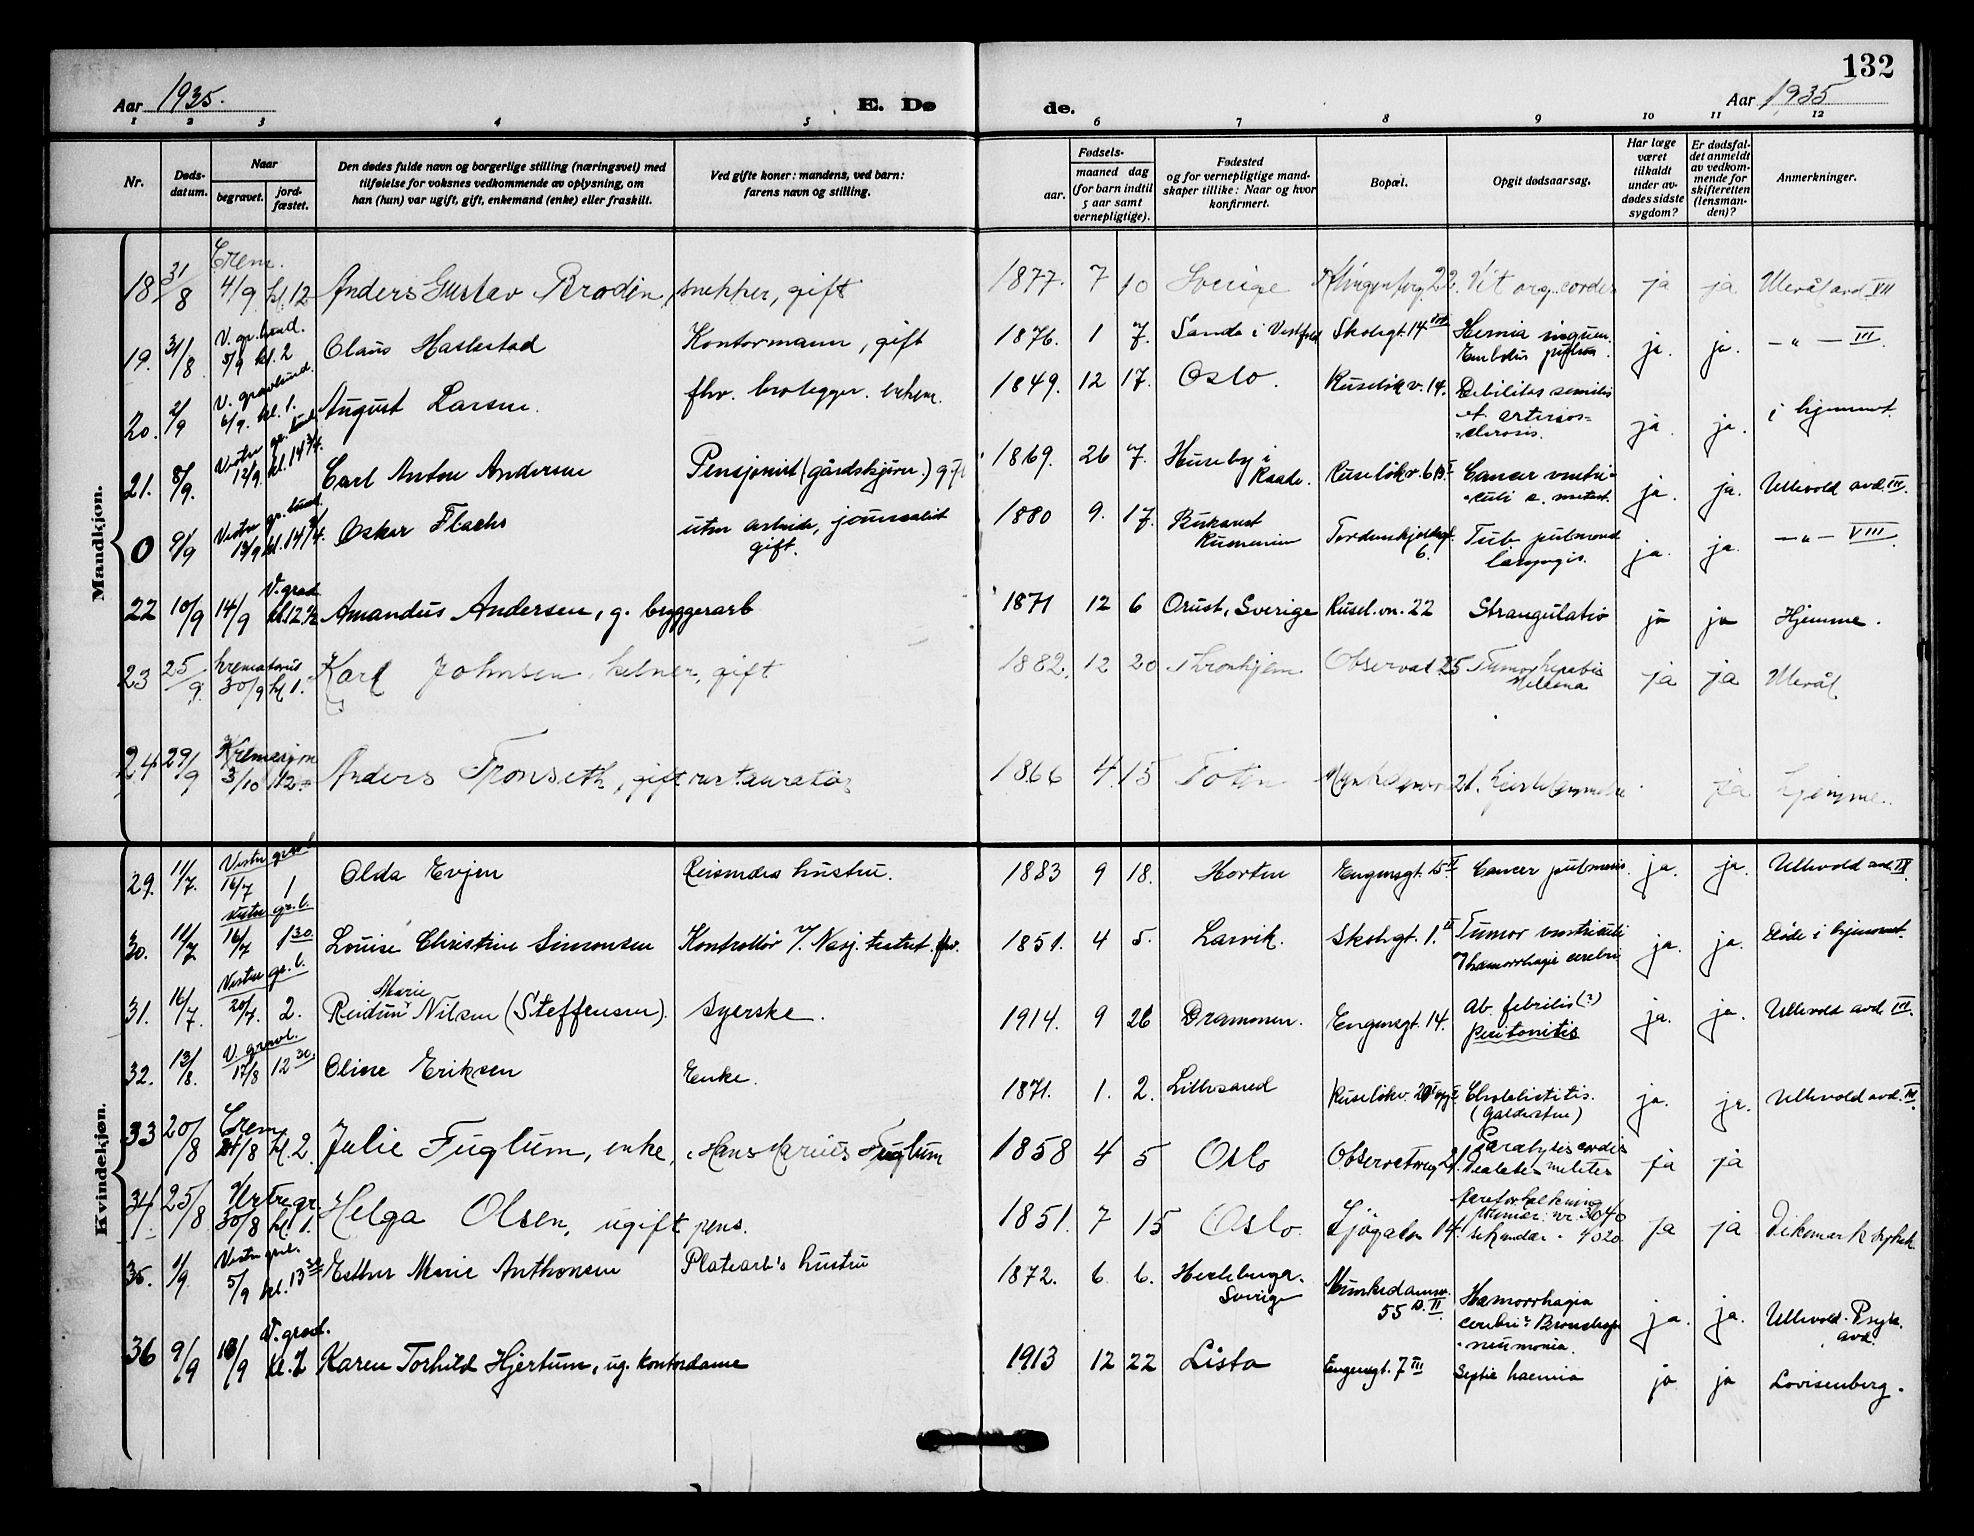 132
Aar 1935.
E. Dø
de.
Aar 1935
1 2 3 4 5 6 7 8 9 10 11 12
Nr.
Døds-
datum.
Naar
begravet.
jord-
fæstet.
Den dødes fulde navn og borgerlige stilling (næringsvei) med
tilføielse for voksnes vedkommende av oplysning, om
han (hun) var ugift, gift, enkemand (enke) eller fraskilt.
Ved gifte koner: mandens, ved barn:
farens navn og stilling.
Fødsels-
aar.
maaned dag
(for barn indtil
5 aar samt
vernepligtige).
Fødested
og for vernepligtige mand-
skaper tillike: Naar og hvor
konfirmert.
Bopæl.
Opgit dødsaarsag.
Har læge
været
tilkaldt
under av-
dødes sidste
sygdom?
Er dødsfal-
det anmeldt
av vedkom-
mende for
skifteretten
(lensman-
den)?
Anmerkninger.
Mandkjøn.
Crem.
18 31/8 4/9 kl. 12 Anders Gustav Brodin, snekker, gift 1877. 7 10 Sverige 22. Vit. org. cordis ja ja Ulevål avd. VII
V. gr.lund.
19. 31/8 5/9 kl. 2 Olaus Haslestad Kontormann, gift 1876. 1 7. Sande i Vestfold Skolegt. 14 Hernia inguin.
Embolus pulm. ja. ja. —"— III.
V. gravlund.
20. 2/9 6/9. kl. 1. August Larsen. fhv. brolegger. enkem. 1849. 12 17. Oslo. Ruseløkv. 14. Debilitas senilis
et arterios-
clerosis. ja. ja. i hjemmet.
Vestre gr. lund
21. 8/9. 12/9. kl. 14 3/4. Carl Anton Andersen Pensjonist (gårdskjører.) gift 1869. 26 7. Huseby i
Raade. Ruseløkv. 6 Cancer ventri-
culi c. metast. ja. ja. Ullevold avd. III.
Vestre gr. lund.
0 9/9 12/9 kl. 14 Oskar Flachs uten arbeide, journalist
gift. 1880 9. 17. Bukarest
Rumenien Tordenskjoldsgt.
6. Tub. pulmon
laryngis. ja. ja. —"— VIII.
V. grad
22 10/9 14/9 kl. 12 1/2 Amandus Andersen, g. bryggerarb 1871 12 6 Orust, Sverige Rusel.vn. 22 Strangulatio ja ja Hjemme.
krematorius
23 25/9. 30/9 kl 1. Karl Johnsen, kelner, gift 1882. 12 20 Tronhjem Observat. 25 Tumor hepatis
Mellena ja ja Ulevål.
Kremasjon
24 29/9 3/10 1/2 Anders Tronseth, gift restauratør 1866 4 15 Toten 21. ja hjemme.
Kvindekjøn.
Vestre gravl.
29. 11/7. 16/7 1 Olda Evjen Reisendes hustru. 1883 9 18. Horten Engensgt. 15 II Cancer pulmonis. ja. ja. Ullevold avd. IX.
Vestre gr.l.
30. 11/7 16/7 1 30. Louise Christine Simonsen Kontrollør v. Nasj. teatret. fhv. 1851. 4 5. Larvik. Skolegt. 1. II Tumor ventriculi
Thæmorrhagia cerebri ja. ja. Døde i hjemmet.
Vestre gr.l.
31. 16/7. 20/7. 2. Reidun Marie Nilsen (Steffensen). syerske. 1914. 9 26 Drammen. Engensgt. 14. ab. febrilis (?)
peritonitis ja. ja. Ullevold avd. III.
V. gravl.
32. 13/8. 17/8 12 30. Oline Eriksen Enke. 1871. 1. 2. Lillesand Ruseløkv. Cholelistitis.
(Galdesten) ja. ja. Ullevold avd.
Crem
33 20/8 24/8 kl. 2. Julie Fuglum, enke, e. Hans Marius Fuglum 1858 4 5 Oslo Observatveg 21. Paralysis cordis
Deabetes melites ja ja
Vestre gr.
34. 25/8 30/8 kl. 1. Helga Olsen, ugift pens. 1851. 7 15 Oslo. Sjøgaten 14. Åreforkalkning
primær: nr. 3040
sekundær - 4020. ja ja Dikemark sykeh.
Vestre gravl.
35. 1/9. 5/9 kl. 13 30 Esther Marie Anthonsen Platearb's hustru 1872. 6. 6. Sverige Munkedamsv.
55 B. II. Hæmorrhagia
cerebri Broncho-
neumonia. ja. ja. Ullevold. Psyk.
avd.
V. grad.
36 9/9 13/9 kl. 2 Karen Torhild Hjertum, ug. kontordame 1913 12 22 Lista Engensgt. 7 III Septic haemia ja ja Lovisenberg.